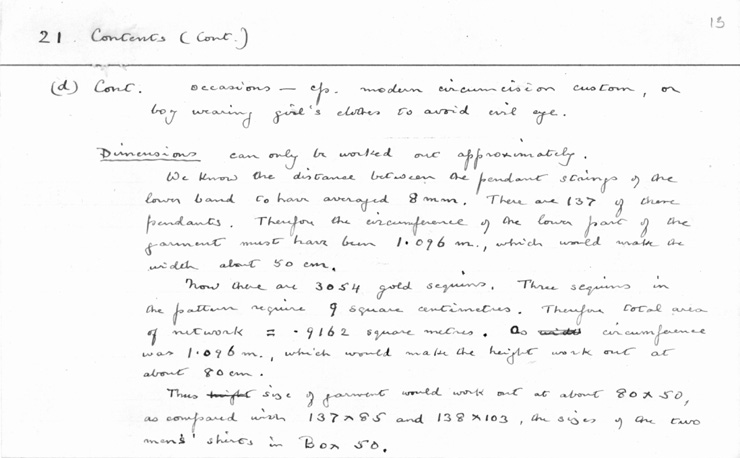 15
21 Contents (Cont.)
(d) Cont. occasions — cp. modern circumcision custom, or
boy wearing girl's clothes to avoid evil eye.
Dimensions can only be worked out approximately.
We know the distance between the pendant strings of the
lower band to have averaged 8 mm. There are 137 of these
pendants. Therefore the circumference of the lower part of the
garment must have been 1.096 m., which would make the
width about 50 cm.
Now there are 3054 gold sequins. Three sequins in
the pattern require 9 square centimetres. Therefore total area
of network = .9162 square metres. As width circumference
was 1.096 m., which would make the height work out at
about 80 cm.
Thus height size of garment would work out at about 80 x 50,
as compared with 137 x 85 and 138 x 103, the sizes of the two
mens' shirts in Box 50.